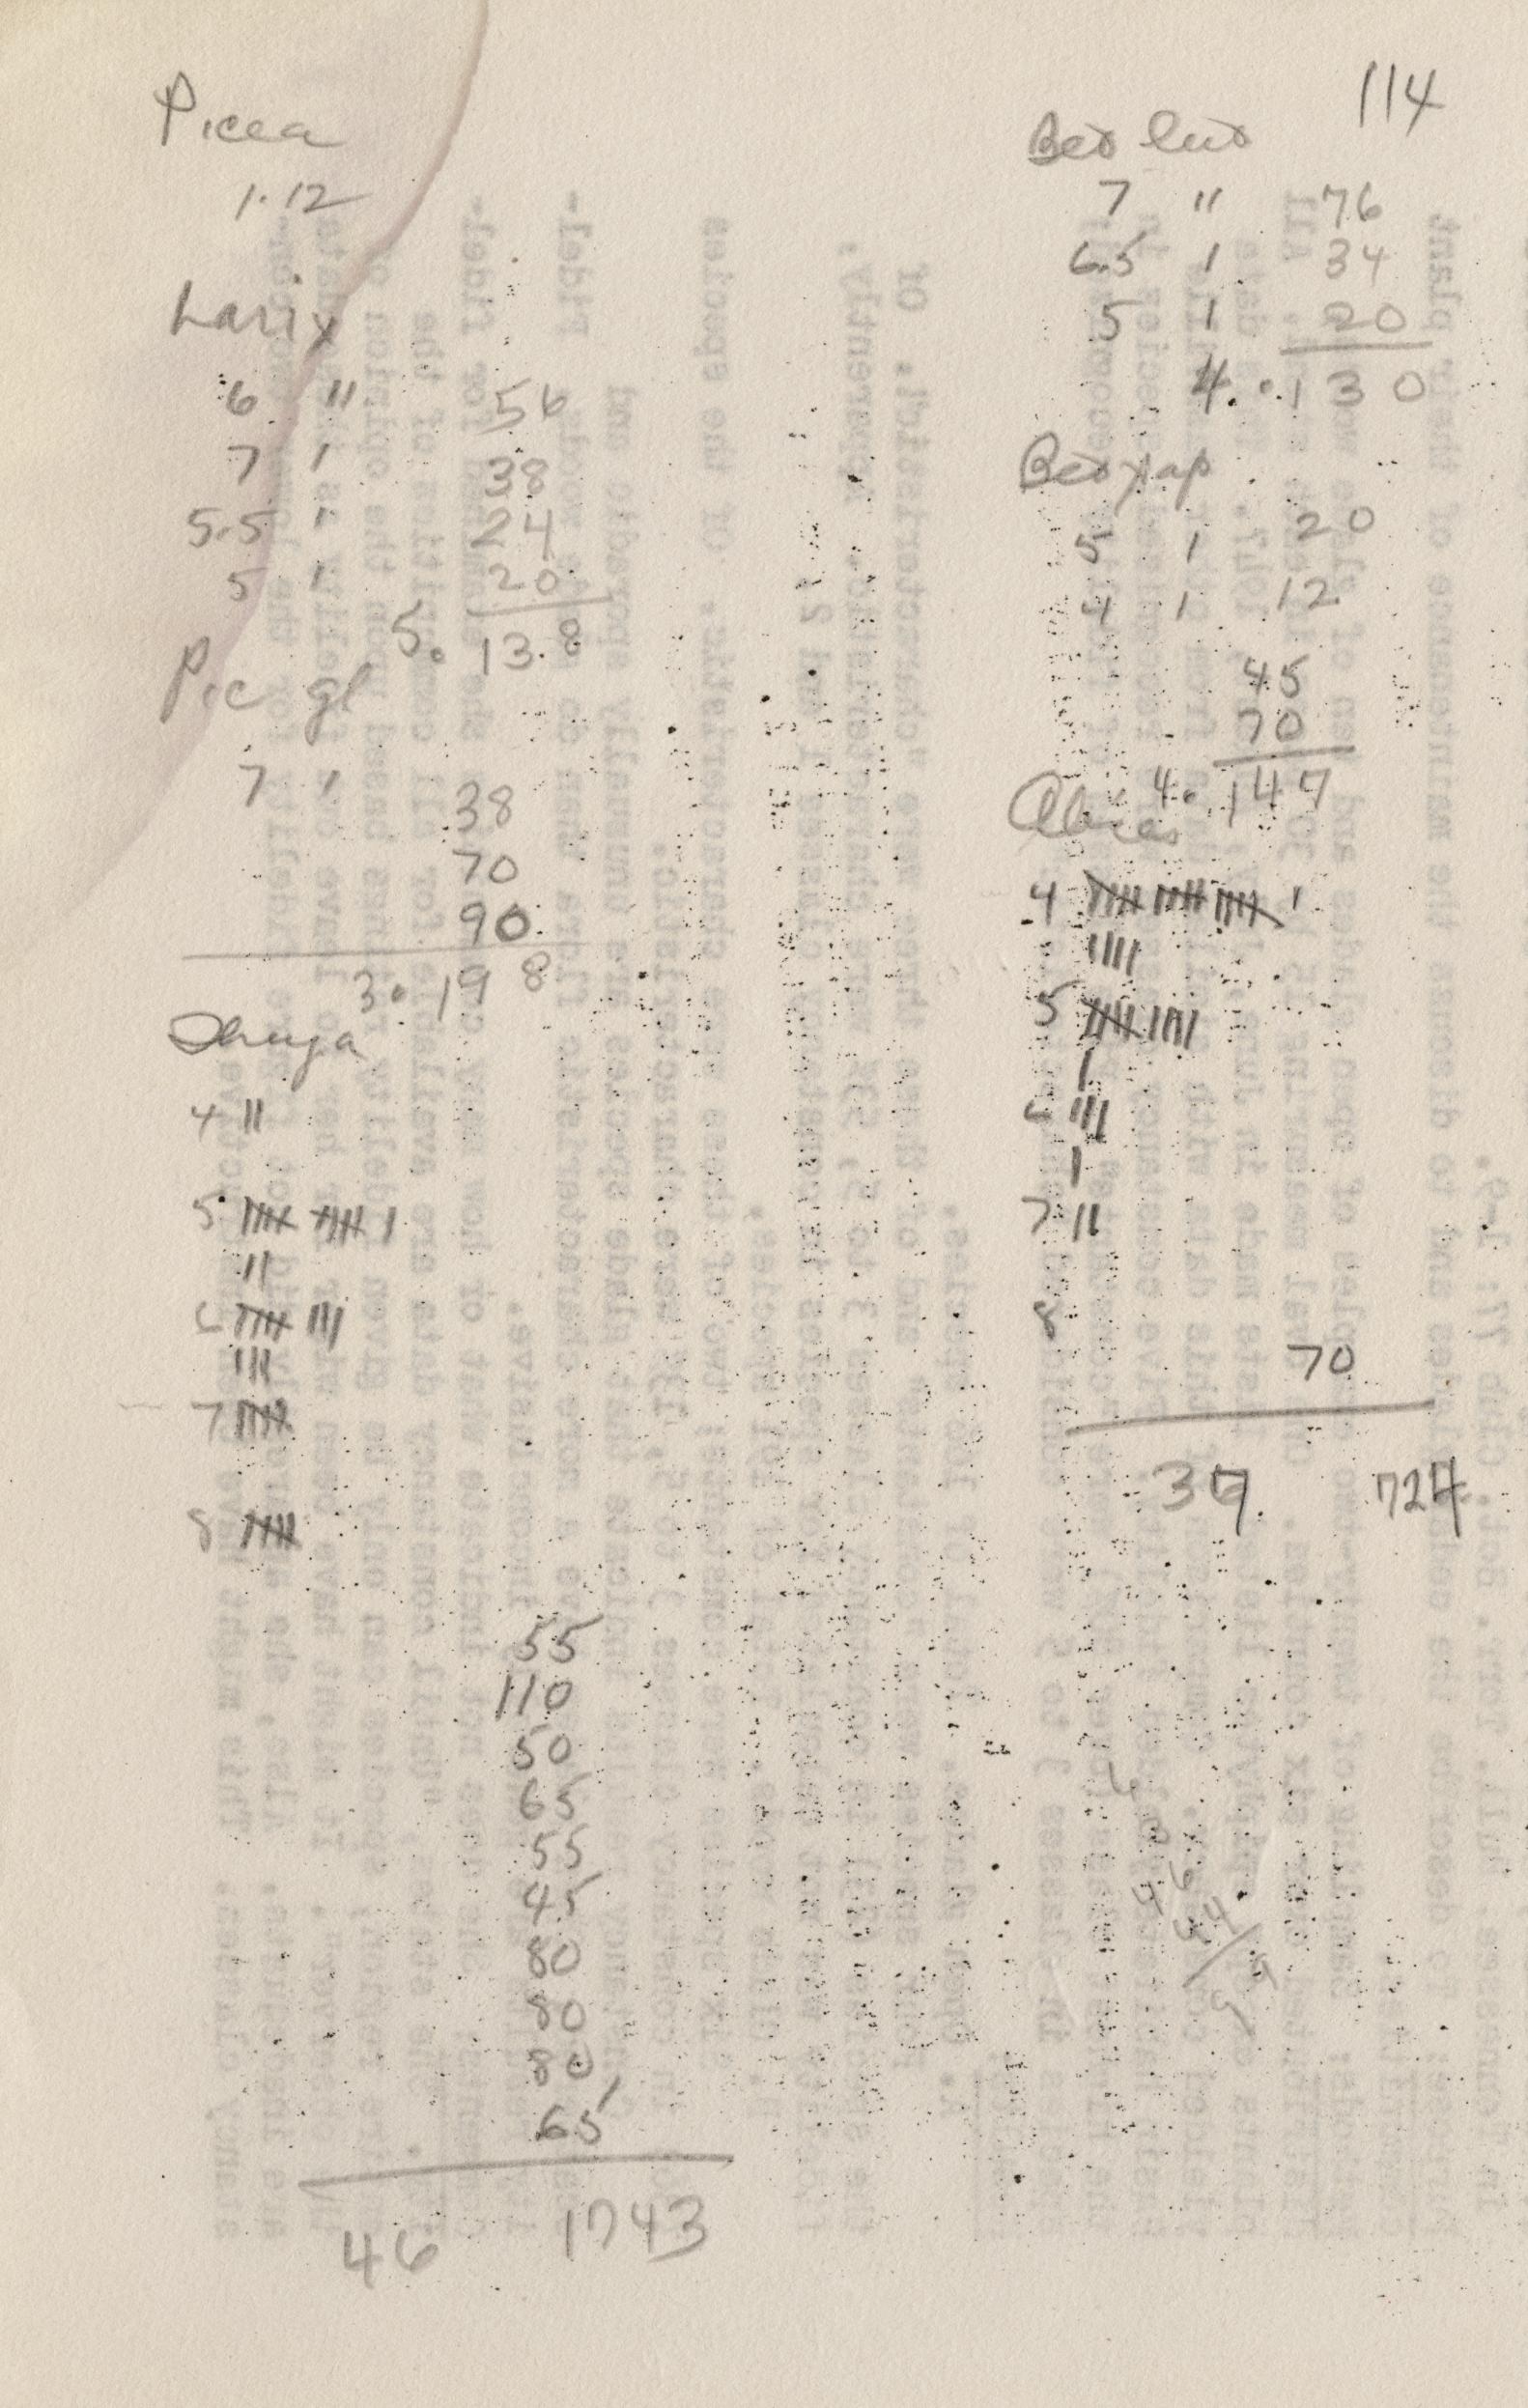 114
Picea
1.12
Larix
6 11 56
7 1 38
5.5 1 24
5 1 20
5. 138
Pic gl
7 1 38
70
90
3. 198
Thuya
4 ||
5 |||| |||| |
||
6 |||| |||
|||
7 ||||
8 ||||
55
110
50
65
55
45
80
80
80
65
46 1743
Bet lut
7 11 76
6.5 1 34
5 1 20
4. 130
Bet pap
5 1 20
4 1 12
45
70
4. 147
Abies
4 |||| |||| |||| 1
||||
5 |||| ||||
|
6 |||
|
7 ||
8
70
37. 724